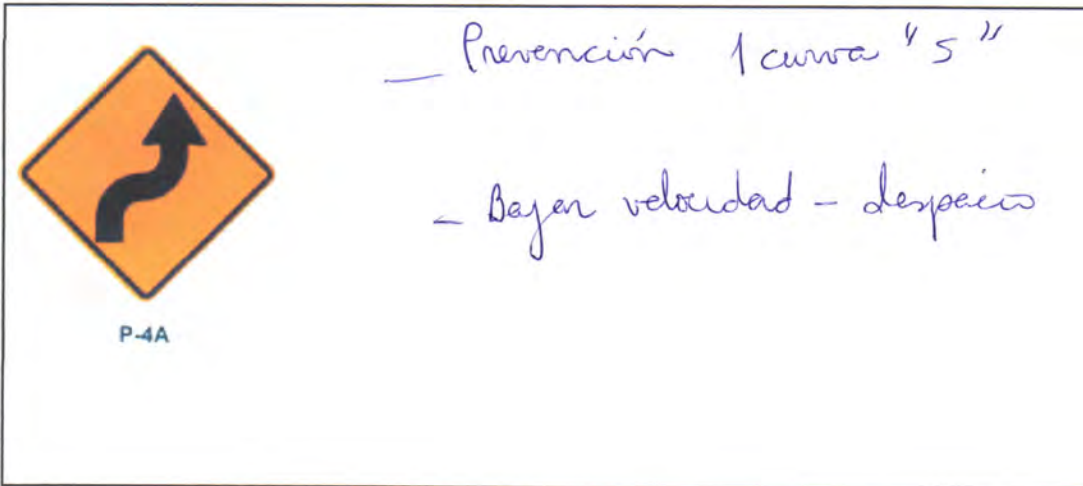 — Prevención 1 curva "S"
- Bajar velocidad - despacio
P-4A